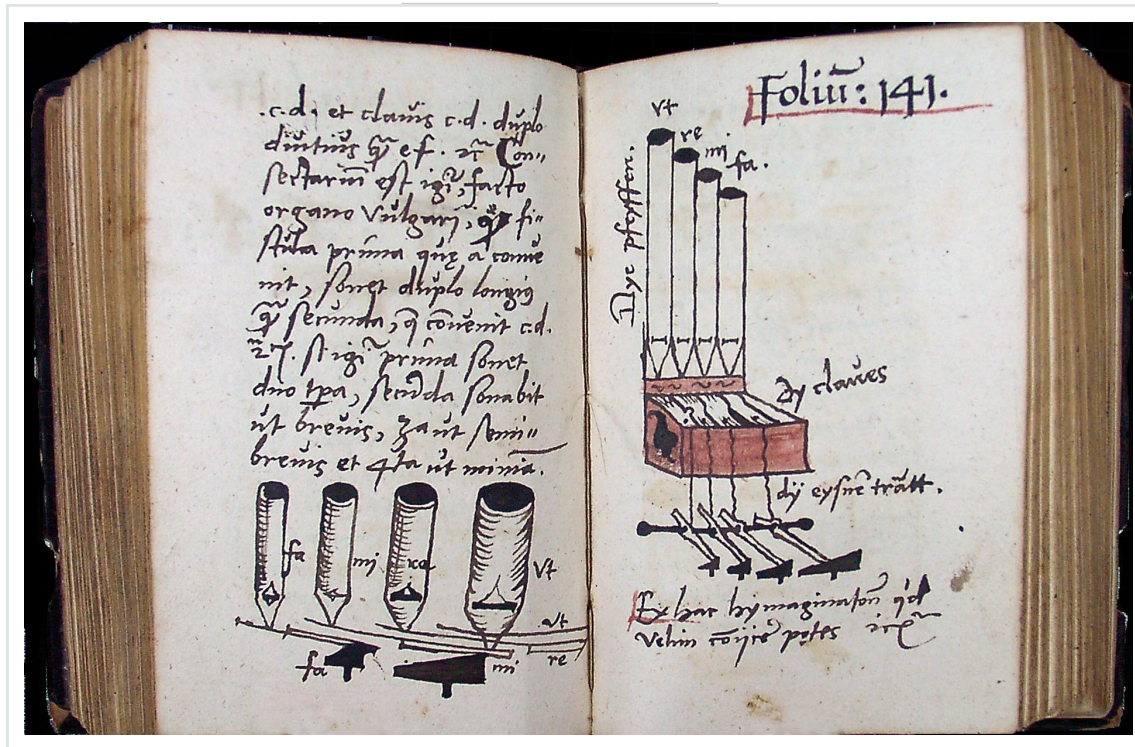 .c.d. et clavis c.d. duplo
diutius qr̄ e.f. rc̄ Con=
sectariū est igr̄, facto
organo vulgari, qp fi=
stula prima quę a conve
nit, sonet duplo longiꝯ
qr̄ secunda, q̄ cōvenit c.d.
st igr̄ prima sonet
duo tp̄a, secūda sonabit
ut brevis, 3a ut semi=
brevis et 4ta ut minīa.
fa
mi
re
vt
vt
re
fa
mi
Foliū: 141.
vt
re
mi
fa.
Dye pfeyffen.
Dy claves
dy eysnē trātt.
Ex hac hymaginatōn qd
velim cōijcē potes